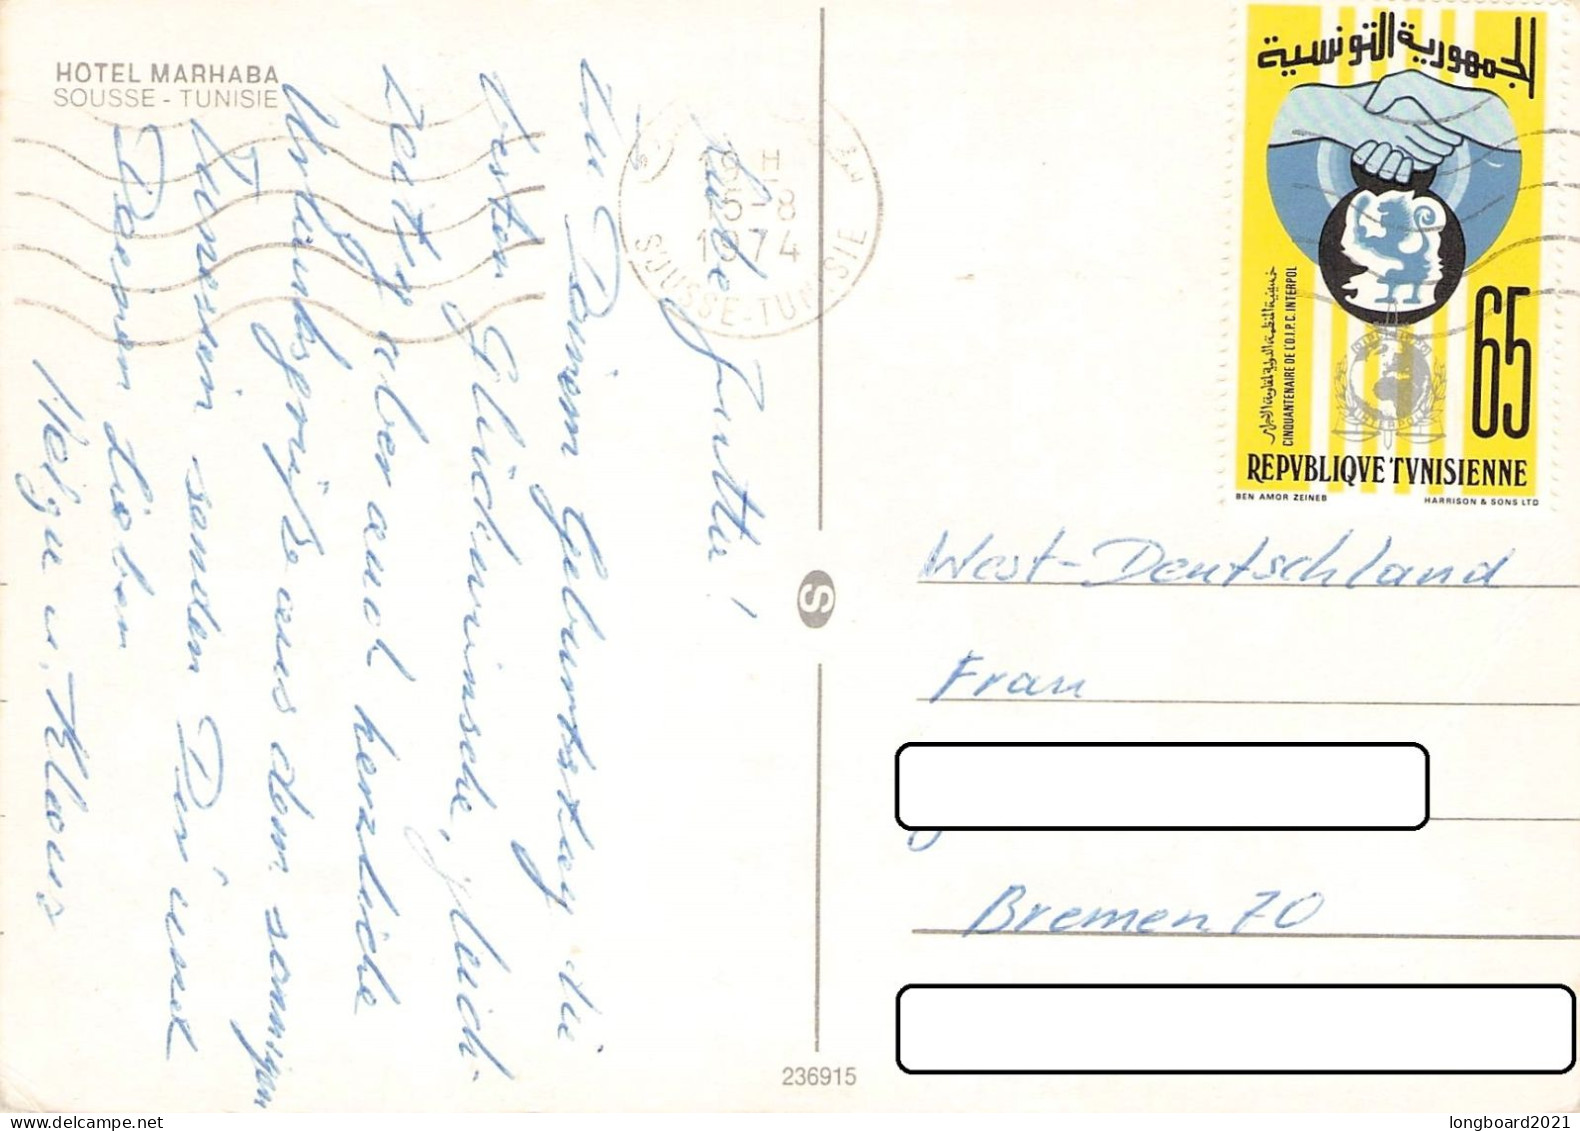 HOTEL MARHABA
SOUSSE - TUNISIE
Liebe Jutta!
Zu Deinem Geburtstag die
besten Glückwünsche, gleich-
zeitig aber auch herzliche
Urlaubsgrüße aus dem sonnigen
Tunesien senden Dir u.
Deinen Lieben
Helga u. Klaus
19 H
15-8
1974
SOUSSE-TUNISIE
الجمهورية التونسية
خمسينية المنظمة الدولية لمقاومة الاجرام
CINQUANTENAIRE DE L'O.I.P.C. INTERPOL
INTERPOL
65
REPVBLIQVE TVNISIENNE
BEN AMOR ZEINEB
HARRISON & SONS LTD
S
West-Deutschland
Frau
Bremen 70
236915
longboard2021